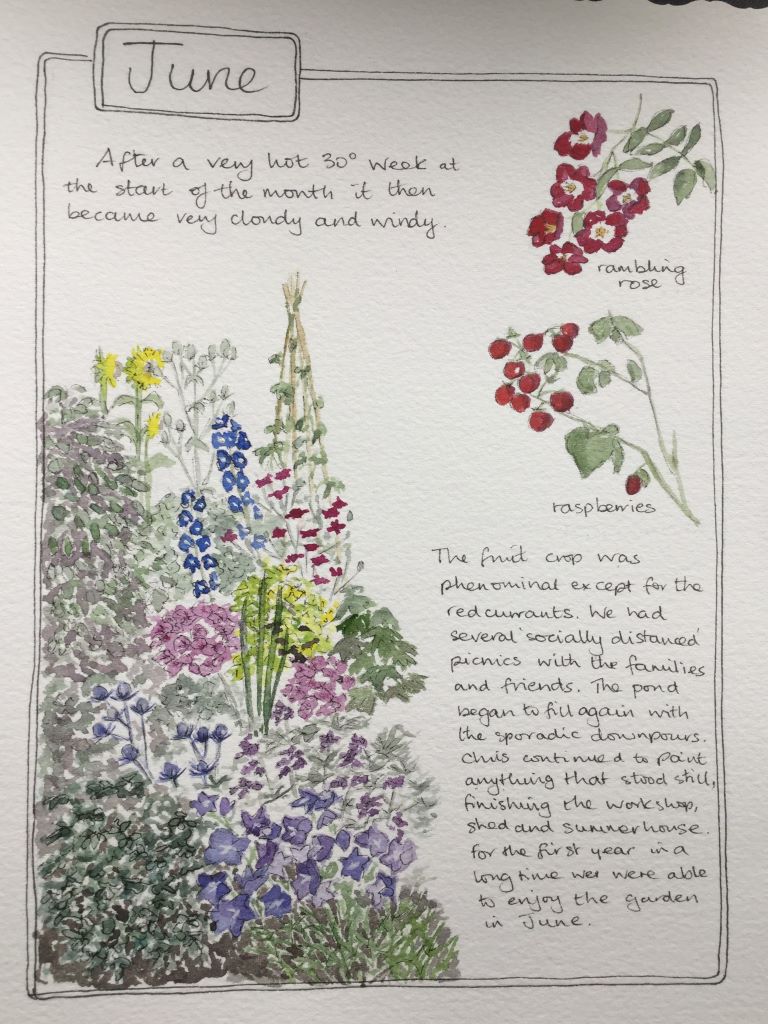 June
After a very hot 30° week at
the start of the month it then
became very cloudy and windy.
rambling
rose
raspberries
The fruit crop was
phenominal except for the
redcurrants. We had
several 'socially distanced'
picnics with the families
and friends. The pond
began to fill again with
the sporadic downpours.
Chris continued to paint
anything that stood still,
finishing the workshop,
shed and summerhouse.
For the first year in a
long time wer were able
to enjoy the garden
in June.